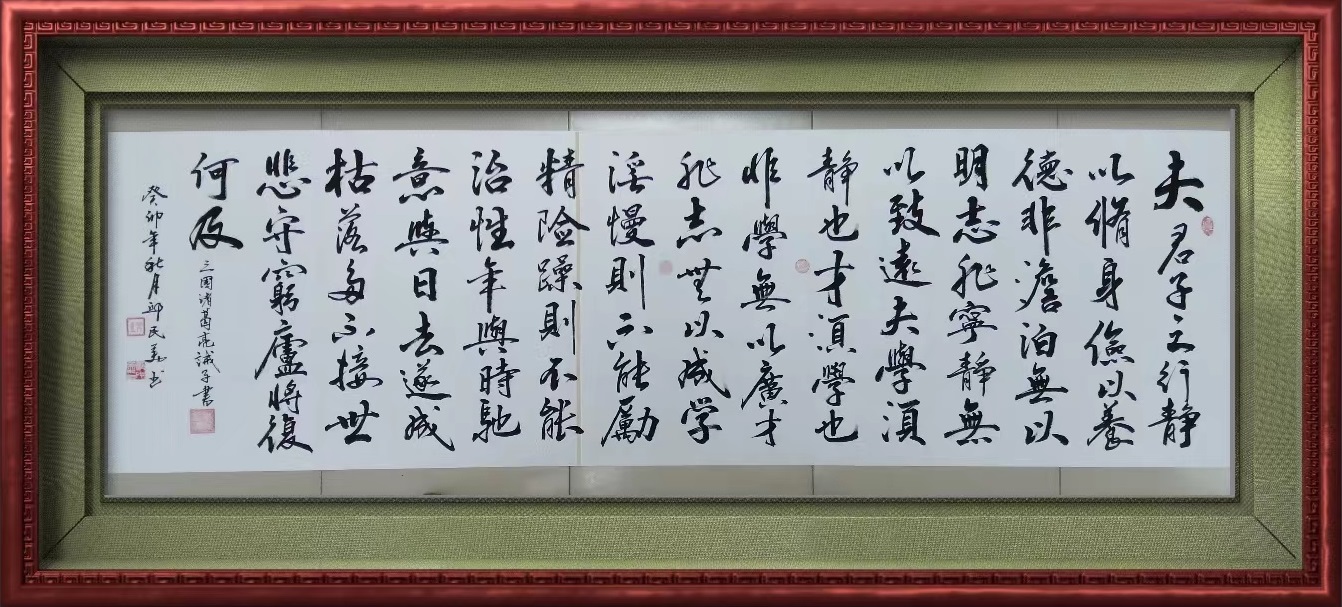 夫君子之行静
以脩身儉以養
德非澹泊無以
明志非寧静無
以致遠夫學須
静也才須學也
非學無以廣才
非志無以成学
淫慢則不能勵
精險躁則不能
治性年與時馳
意與日去遂成
枯落多不接世
悲守窮廬將復
何及
三國诸葛亮誡子書
癸卯年秋月邱民书